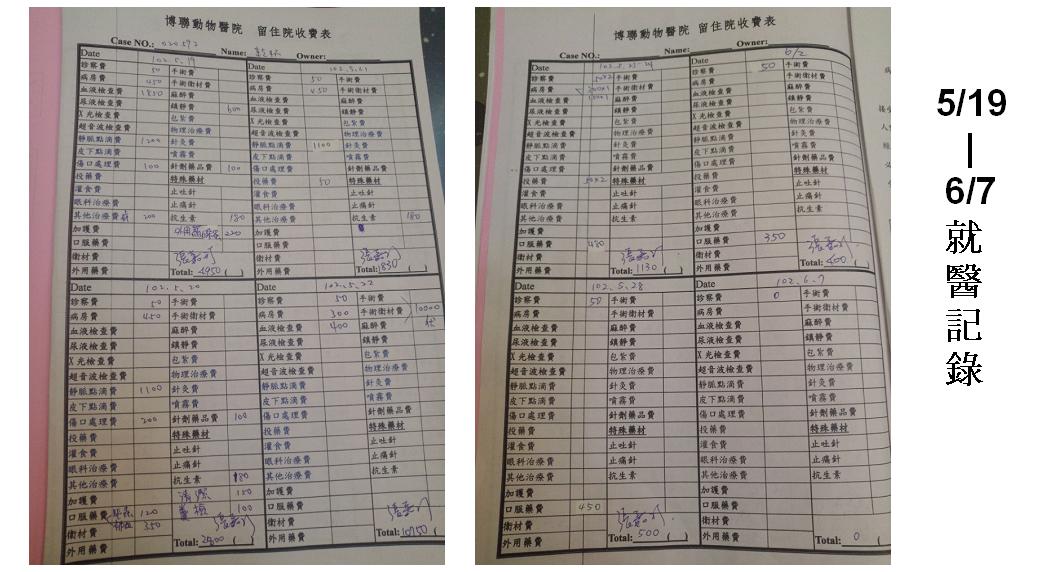 博聯動物醫院 留住院收費表
Case NO.: 020592 Name: Owner:
Date 102.5.19 Date 102.5.21
診察費 50 手術費 診察費 50 手術費
病房費 450 手術衛材費 病房費 450 手術衛材費
血液檢查費 1850 麻醉費 血液檢查費 麻醉費
尿液檢查費 鎮靜費 600 尿液檢查費 鎮靜費
X光檢查費 包紮費 X光檢查費 包紮費
超音波檢查費 物理治療費 超音波檢查費 物理治療費
靜脈點滴費 1200 針灸費 靜脈點滴費 1100 針灸費
皮下點滴費 噴霧費 皮下點滴費 噴霧費
傷口處理費 100 針劑藥品費 100 傷口處理費 針劑藥品費
投藥費 特殊藥材 投藥費 50 特殊藥材
灌食費 止吐針 灌食費 止吐針
眼科治療費 止痛針 眼科治療費 止痛針
其他治療費 200 抗生素 180 其他治療費 抗生素 180
加護費 220 加護費
口服藥費 口服藥費
衛材費 衛材費
外用藥費 Total: 4950 ( ) 外用藥費 Total: 1830 ( )
Date 102.5.20 Date 102.5.22
診察費 50 手術費 診察費 50 手術費
病房費 450 手術衛材費 病房費 300 手術衛材費 10000
血液檢查費 麻醉費 血液檢查費 400 麻醉費
尿液檢查費 鎮靜費 尿液檢查費 鎮靜費
X光檢查費 包紮費 X光檢查費 包紮費
超音波檢查費 物理治療費 超音波檢查費 物理治療費
靜脈點滴費 1100 針灸費 靜脈點滴費 針灸費
皮下點滴費 噴霧費 皮下點滴費 噴霧費
傷口處理費 200 針劑藥品費 100 傷口處理費 針劑藥品費
投藥費 特殊藥材 投藥費 特殊藥材
灌食費 止吐針 灌食費 止吐針
眼科治療費 止痛針 眼科治療費 止痛針
其他治療費 抗生素 180 其他治療費 抗生素
加護費 150 加護費
口服藥費 120 100 口服藥費
衛材費 350 衛材費
外用藥費 Total: 2800 ( ) 外用藥費 Total: 10750 ( )
博聯動物醫院 留住院收費表
Case NO.: Name: Owner:
Date 102.5.23-24 Date 6/2
診察費 50×2 手術費 診察費 50 手術費
病房費 手術衛材費 病房費 手術衛材費
血液檢查費 麻醉費 血液檢查費 麻醉費
尿液檢查費 鎮靜費 尿液檢查費 鎮靜費
X光檢查費 包紮費 X光檢查費 包紮費
超音波檢查費 物理治療費 超音波檢查費 物理治療費
靜脈點滴費 針灸費 靜脈點滴費 針灸費
皮下點滴費 噴霧費 皮下點滴費 噴霧費
傷口處理費 針劑藥品費 傷口處理費 針劑藥品費
投藥費 50×2 特殊藥材 投藥費 特殊藥材
灌食費 止吐針 灌食費 止吐針
眼科治療費 止痛針 眼科治療費 止痛針
其他治療費 抗生素 其他治療費 抗生素
加護費 加護費
口服藥費 480 口服藥費 350
衛材費 衛材費
外用藥費 Total: 1130 ( ) 外用藥費 Total: 400 ( )
Date 102.5.28 Date 102.6.7
診察費 50 手術費 診察費 0 手術費
病房費 手術衛材費 病房費 手術衛材費
血液檢查費 麻醉費 血液檢查費 麻醉費
尿液檢查費 鎮靜費 尿液檢查費 鎮靜費
X光檢查費 包紮費 X光檢查費 包紮費
超音波檢查費 物理治療費 超音波檢查費 物理治療費
靜脈點滴費 針灸費 靜脈點滴費 針灸費
皮下點滴費 噴霧費 皮下點滴費 噴霧費
傷口處理費 針劑藥品費 傷口處理費 針劑藥品費
投藥費 特殊藥材 投藥費 特殊藥材
灌食費 止吐針 灌食費 止吐針
眼科治療費 止痛針 眼科治療費 止痛針
其他治療費 抗生素 其他治療費 抗生素
加護費 加護費
口服藥費 450 口服藥費
衛材費 衛材費
外用藥費 Total: 500 ( ) 外用藥費 Total: 0 ( )
5/19
|
6/7
就
醫
記
錄